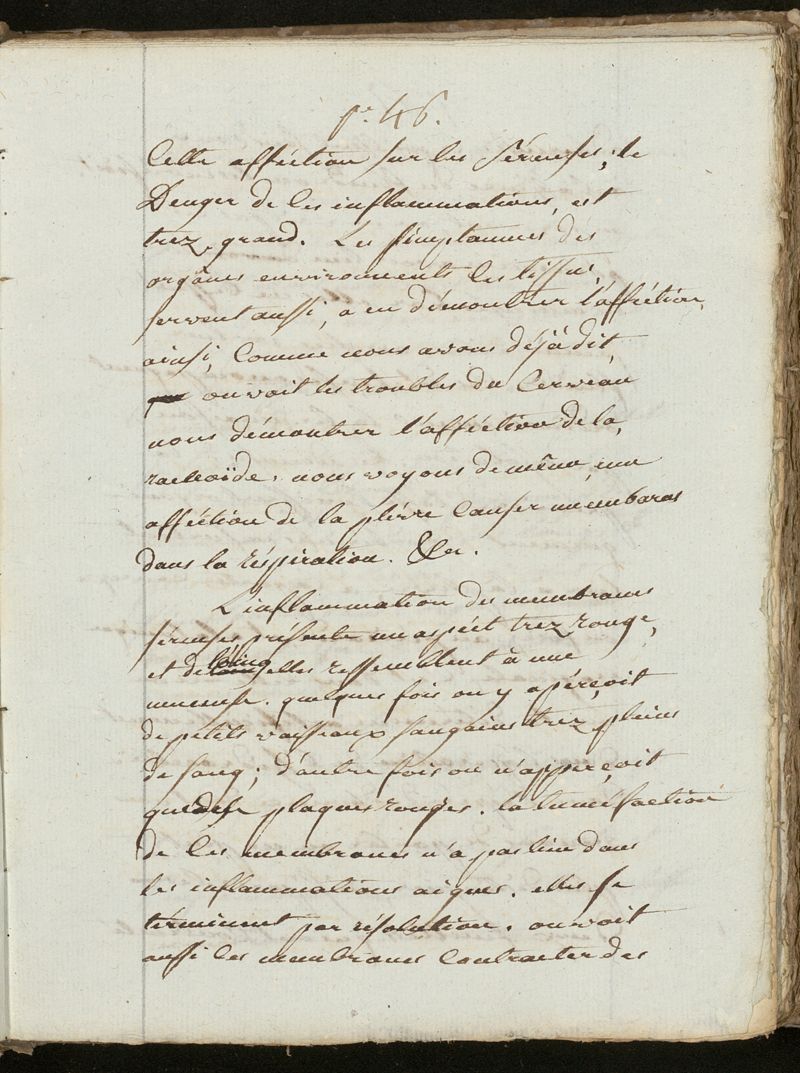 pe. 46.
Cette afféction sur les séreuses; le
Denger de ces inflammations, est
trez grand. Les simptaumes des
orgânes environnents les tissus,
servent aussi, a en démontrer l'afféction,
ainsi, Comme nous avons déjà dit,
on voit les troubles du Cerveau
nous démontrer l'afféction de la,
rachoïde. nous voyons de même, une
afféction de la plévre Causer un embaras
dans la réspiration. &er.
L'inflammation des membranes
séreuses présente un aspéct trez rouge,
et de loing elles ressemblent à une
muceuse. quelques fois on y apérçoit
de petits vaisseaux sanguins trez pleins
de sang; d'autre fois on n'apperçoit
que des plaques rouges. la tuméfaction
de Ces membranes n'a pas lieu dans
les inflammations aigues. elles se
términent par résolution. on voit
aussi Ces membranes Contracter des